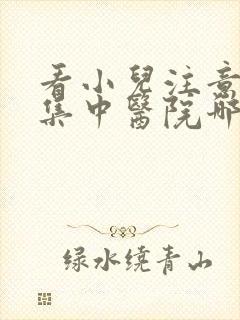 看小兒注意
集中醫院哪
绿水绕青山